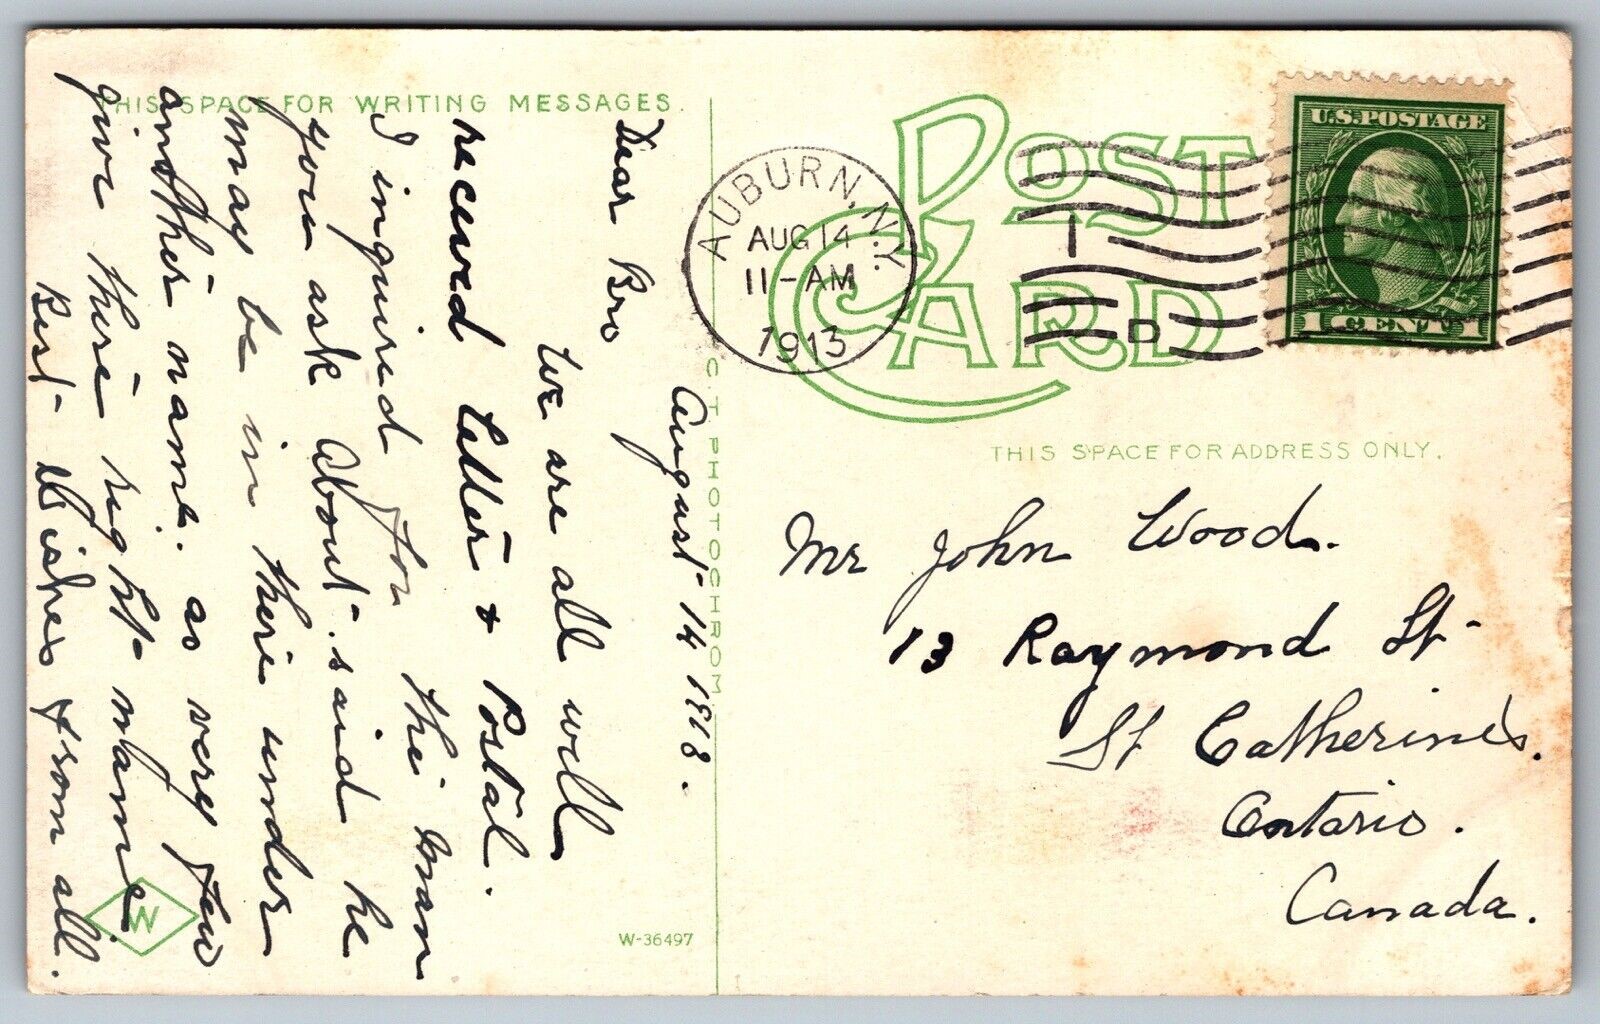 THIS SPACE FOR WRITING MESSAGES.
August 14 1913.
Dear Bro
We are all well
received Letter & Postal.
I inquired for the man
you ask About. said he
may be in there under
another name. as very few
give there right name
Best Wishes from all.
W
W-36497
C. T. PHOTOCHROM
POST CARD
AUBURN, N.Y.
AUG 14
11-AM
1913
1
D
U.S. POSTAGE
1 CENT 1
THIS SPACE FOR ADDRESS ONLY.
Mr John Wood.
13 Raymond St
St Catherines.
Ontario.
Canada.